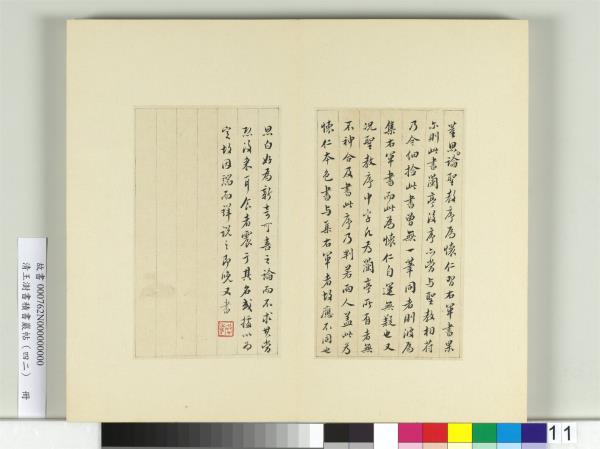 董思論聖教序為懷仁習右軍書果
尓則此書蘭亭後序亦當與聖教相符
乃今細拾此書曾無一筆同者則彼為
集右軍書而此為懷仁自運無疑也又
況聖教序中字凡為蘭亭所有者無
不神合及書此序乃判若兩人蓋此為
懷仁本色書與集右軍者故應不同也
思白好為新奇可喜之論而不求其當
熟後來耳食者震于其名或據以為
定故因臨而詳說之即晚又書
故書000762N000000000
清王澍書積書巖帖（四二） 冊
11